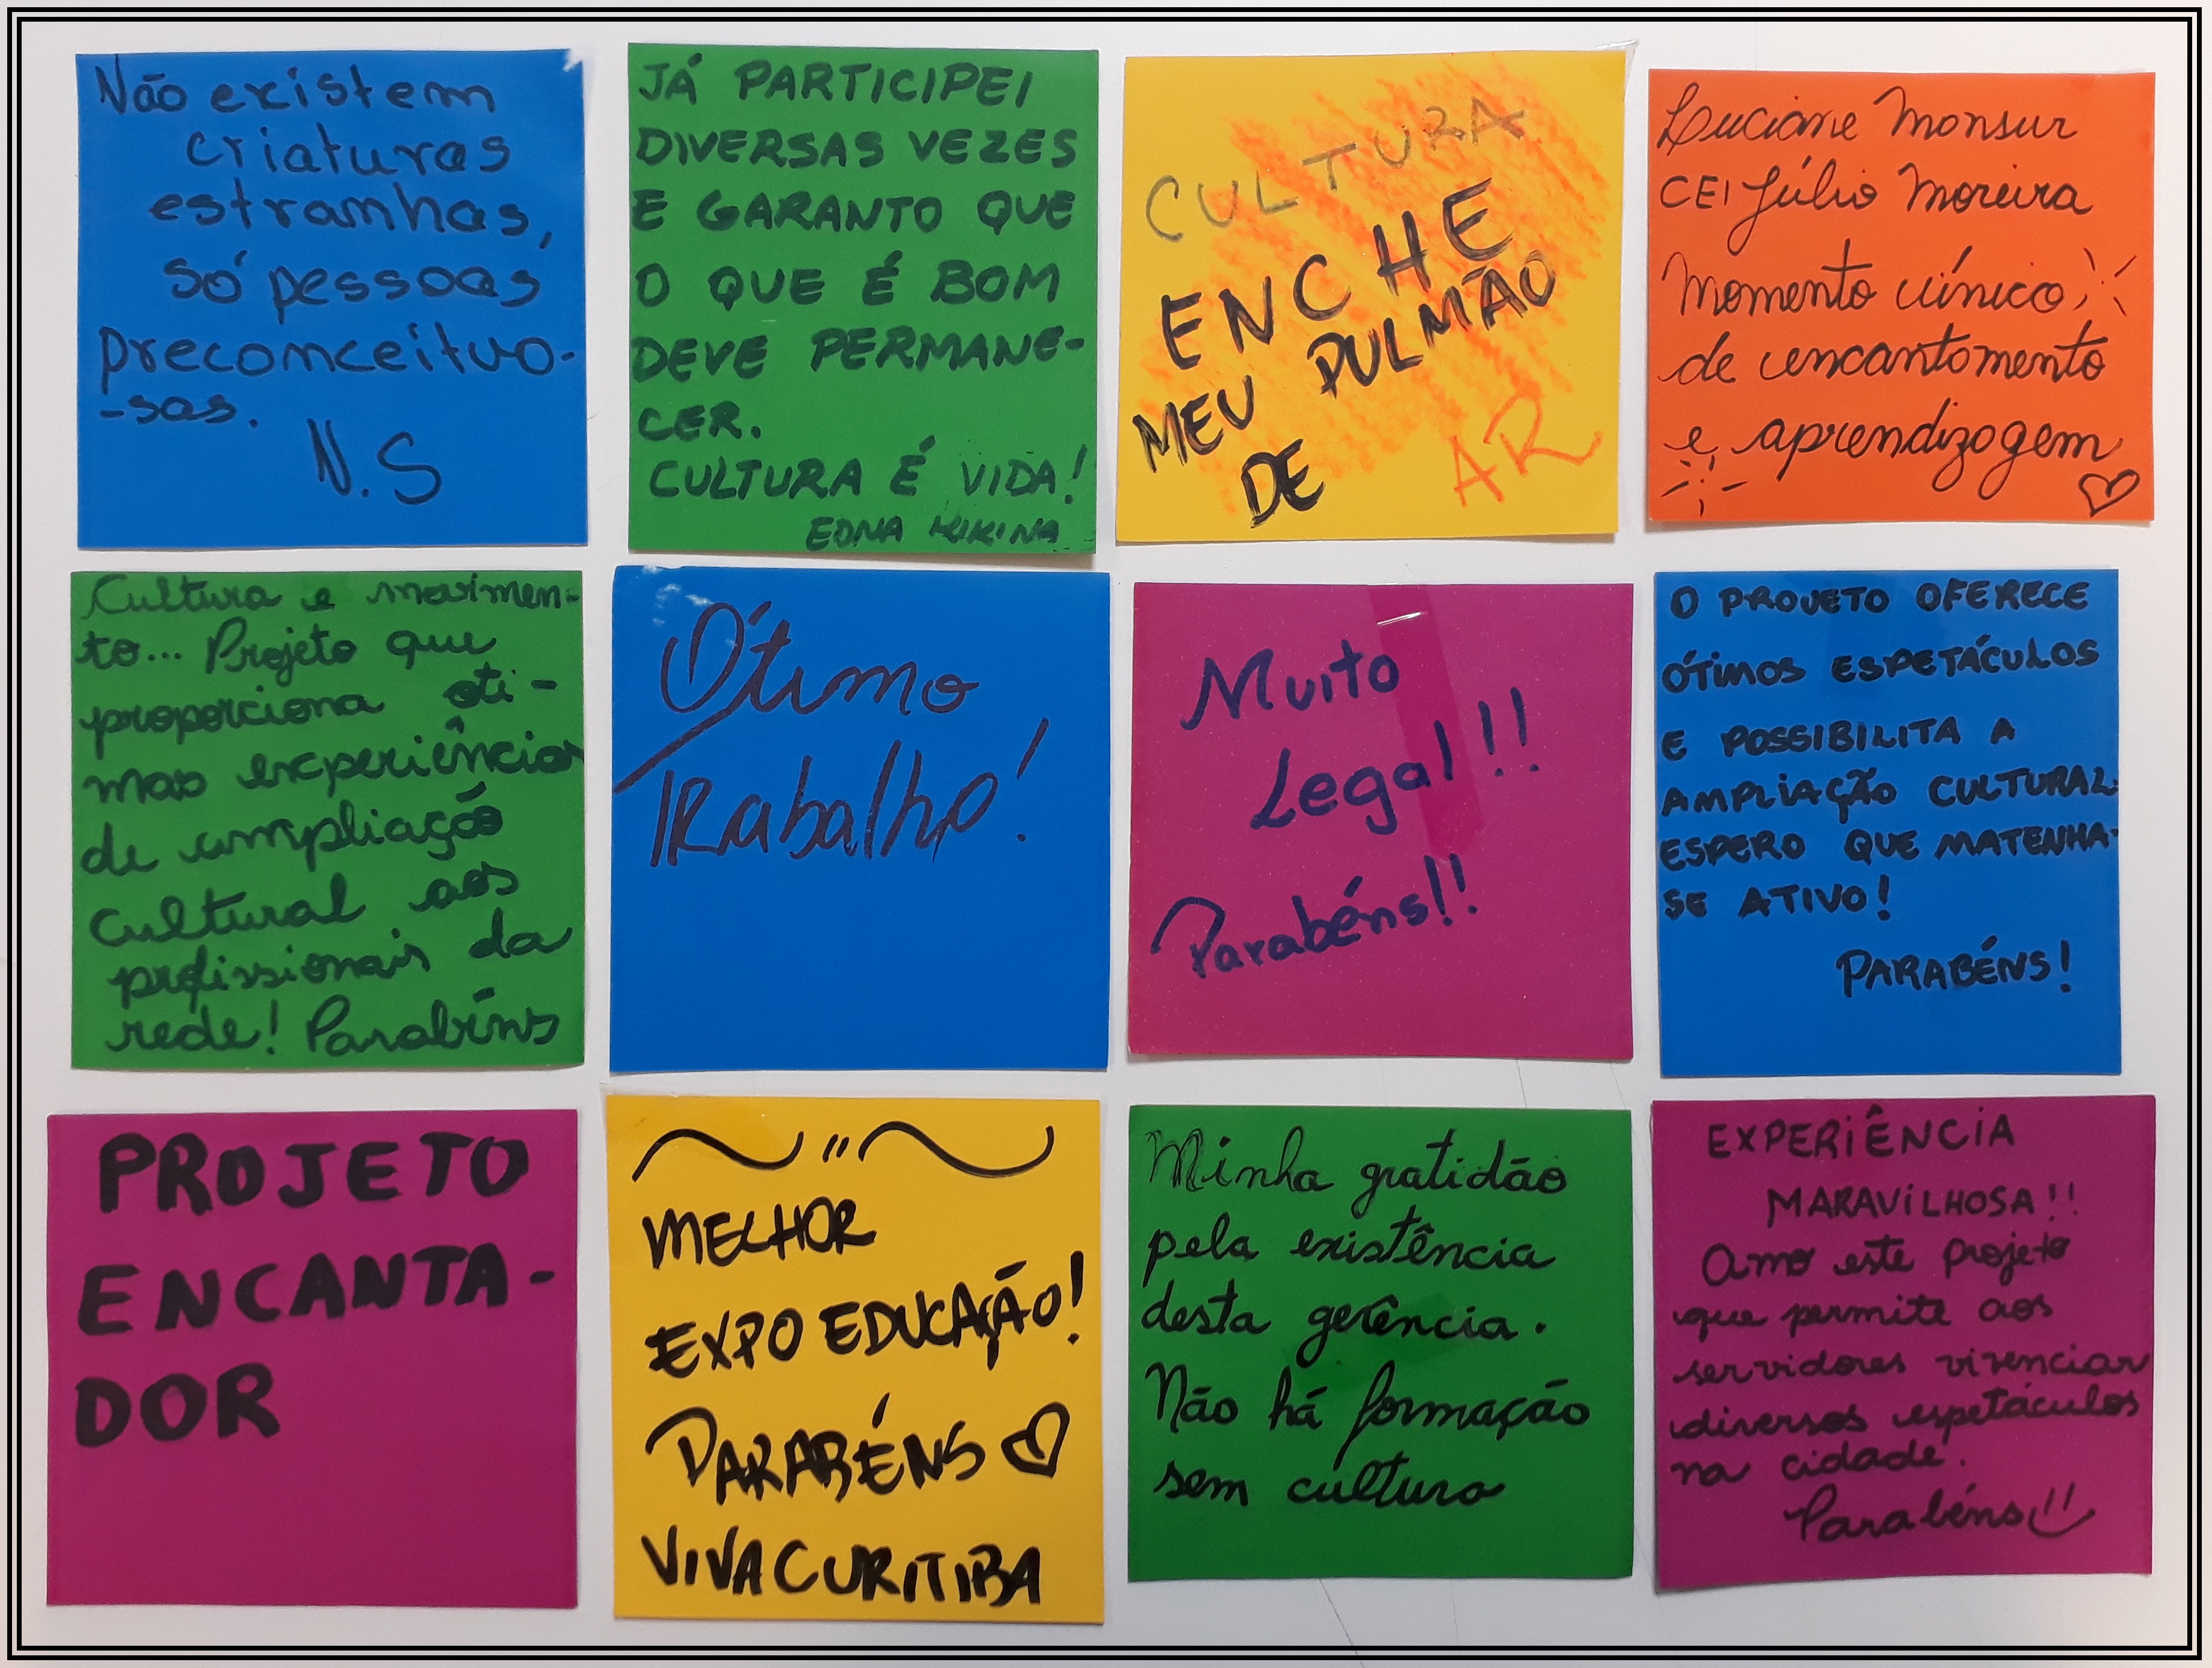 Não existem
criaturas
estranhas,
só pessoas
preconceituo-
-sas.
N.S
JÁ PARTICIPEI
DIVERSAS VEZES
E GARANTO QUE
O QUE É BOM
DEVE PERMANE-
CER.
CULTURA É VIDA!
EDNA KIKINA
CULTURA
ENCHE
MEU PULMÃO
DE AR
Luciane Monsur
CEI Júlio Moreira
Momento único,
de encantamento
e aprendizagem
Cultura e movimen-
to... Projeto que
proporciona óti-
mas experiências
de ampliação
Cultural aos
profissionais da
rede! Parabéns
Ótimo
Trabalho!
Muito
Legal!!
Parabéns!!
O PROJETO OFERECE
ÓTIMOS ESPETÁCULOS
E POSSIBILITA A
AMPLIAÇÃO CULTURAL.
ESPERO QUE MATENHA-
SE ATIVO!
PARABÉNS!
PROJETO
ENCANTA-
DOR
MELHOR
EXPO EDUCAÇÃO!
PARABÉNS
VIVA CURITIBA
Minha gratidão
pela existência
desta gerência.
Não há formação
sem cultura
EXPERIÊNCIA
MARAVILHOSA!!
Amo este projeto
que permite aos
servidores vivenciar
diversos espetáculos
na cidade.
Parabéns!!